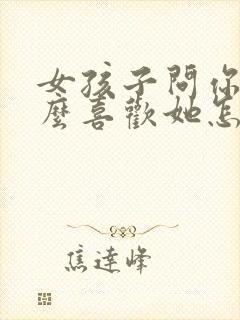 女孩子問你
麼喜歡她怎
焦達峰